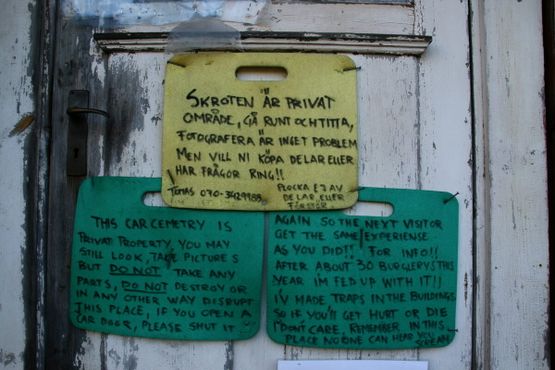 SKROTEN ÄR PRIVAT
OMRÅDE, GÅ RUNT OCH TITTA,
FOTOGRAFERA ÄR INGET PROBLEM
MEN VILL NI KÖPA DELAR ELLER
HAR FRÅGOR RING!!
TOMAS 070-3429988
PLOCKA EJ AV
DELAR, ELLER
FÖRSTÖR
THIS CAR CEMETRY IS
PRIVAT PROPERTY, YOU MAY
STILL LOOK, TAKE PICTURES
BUT DO NOT TAKE ANY
PARTS, DO NOT DESTROY OR
IN ANY OTHER WAY DISRUPT
THIS PLACE, IF YOU OPEN A
CAR DOOR, PLEASE SHUT IT
AGAIN SO THE NEXT VISITOR
GET THE SAME EXPERIENSE
AS YOU DID!! FOR INFO!!
AFTER ABOUT 30 BURGLERYS THIS
YEAR IM FED UP WITH IT!!
I'V MADE TRAPS IN THE BUILDINGS
SO IF YOU'LL GET HURT OR DIE
I DON'T CARE, REMEMBER IN THIS
PLACE NO ONE CAN HEAR YOU
SCREAM